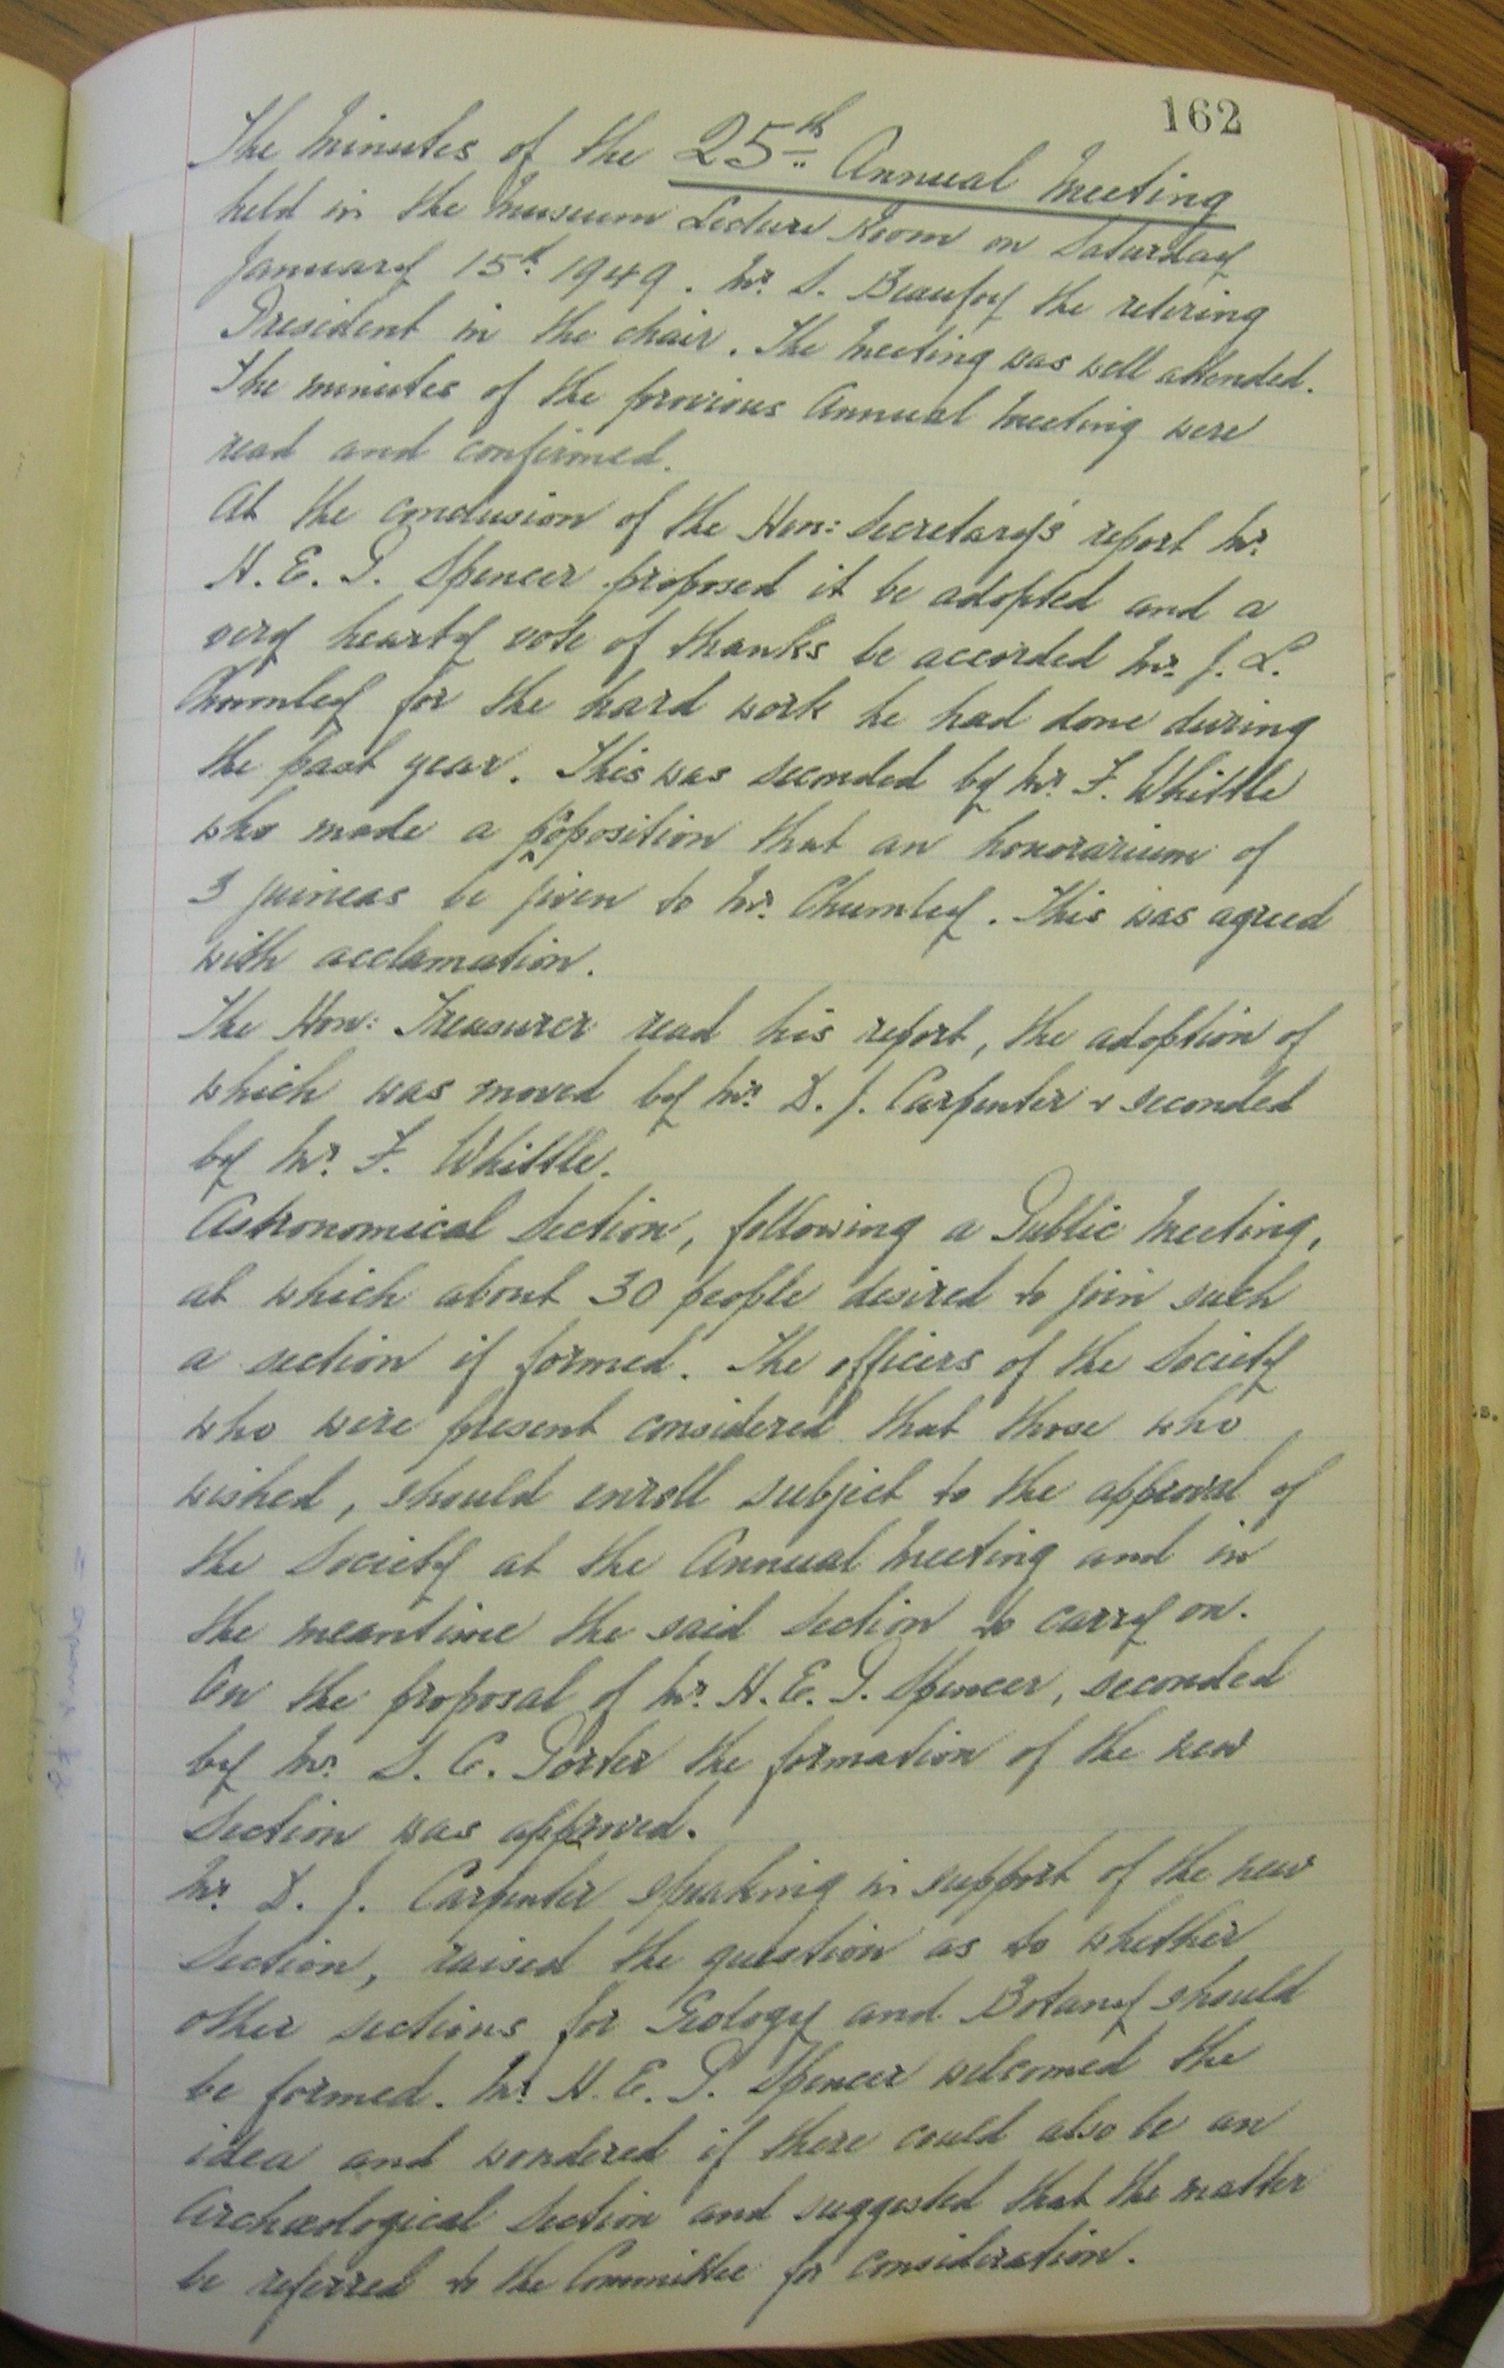 162
The Minutes of the 25th Annual Meeting
held in the Museum Lecture Room on Saturday
January 15th 1949. Mr. S. Beaufoy the retiring
President in the chair. The Meeting was well attended.
The minutes of the previous Annual Meeting were
read and confirmed.
At the conclusion of the Hon: Secretary's report Mr.
H. E. P. Spencer proposed it be adopted and a
very hearty vote of thanks be accorded Mr. J. L.
Chumley for the hard work he had done during
the past year. This was seconded by Mr. F. Whittle
who made a proposition that an honorarium of
3 guineas be given to Mr. Chumley. This was agreed
with acclamation.
The Hon: Treasurer read his report, the adoption of
which was moved by Mr. D. J. Carpenter & seconded
by Mr. F. Whittle.
Astronomical Section, following a Public Meeting,
at which about 30 people desired to join such
a section if formed. The officers of the Society
who were present considered that those who
wished, should enroll subject to the approval of
the Society at the Annual Meeting and in
the meantime the said Section to carry on.
On the proposal of Mr. H. E. P. Spencer, seconded
by Mr. S. C. Porter the formation of the new
Section was approved.
Mr. D. J. Carpenter speaking in support of the new
Section, raised the question as to whether
other sections for Geology and Botany should
be formed. Mr. H. E. P. Spencer welcomed the
idea and wondered if there could also be an
Archæological Section and suggested that the matter
be referred to the Committee for consideration.